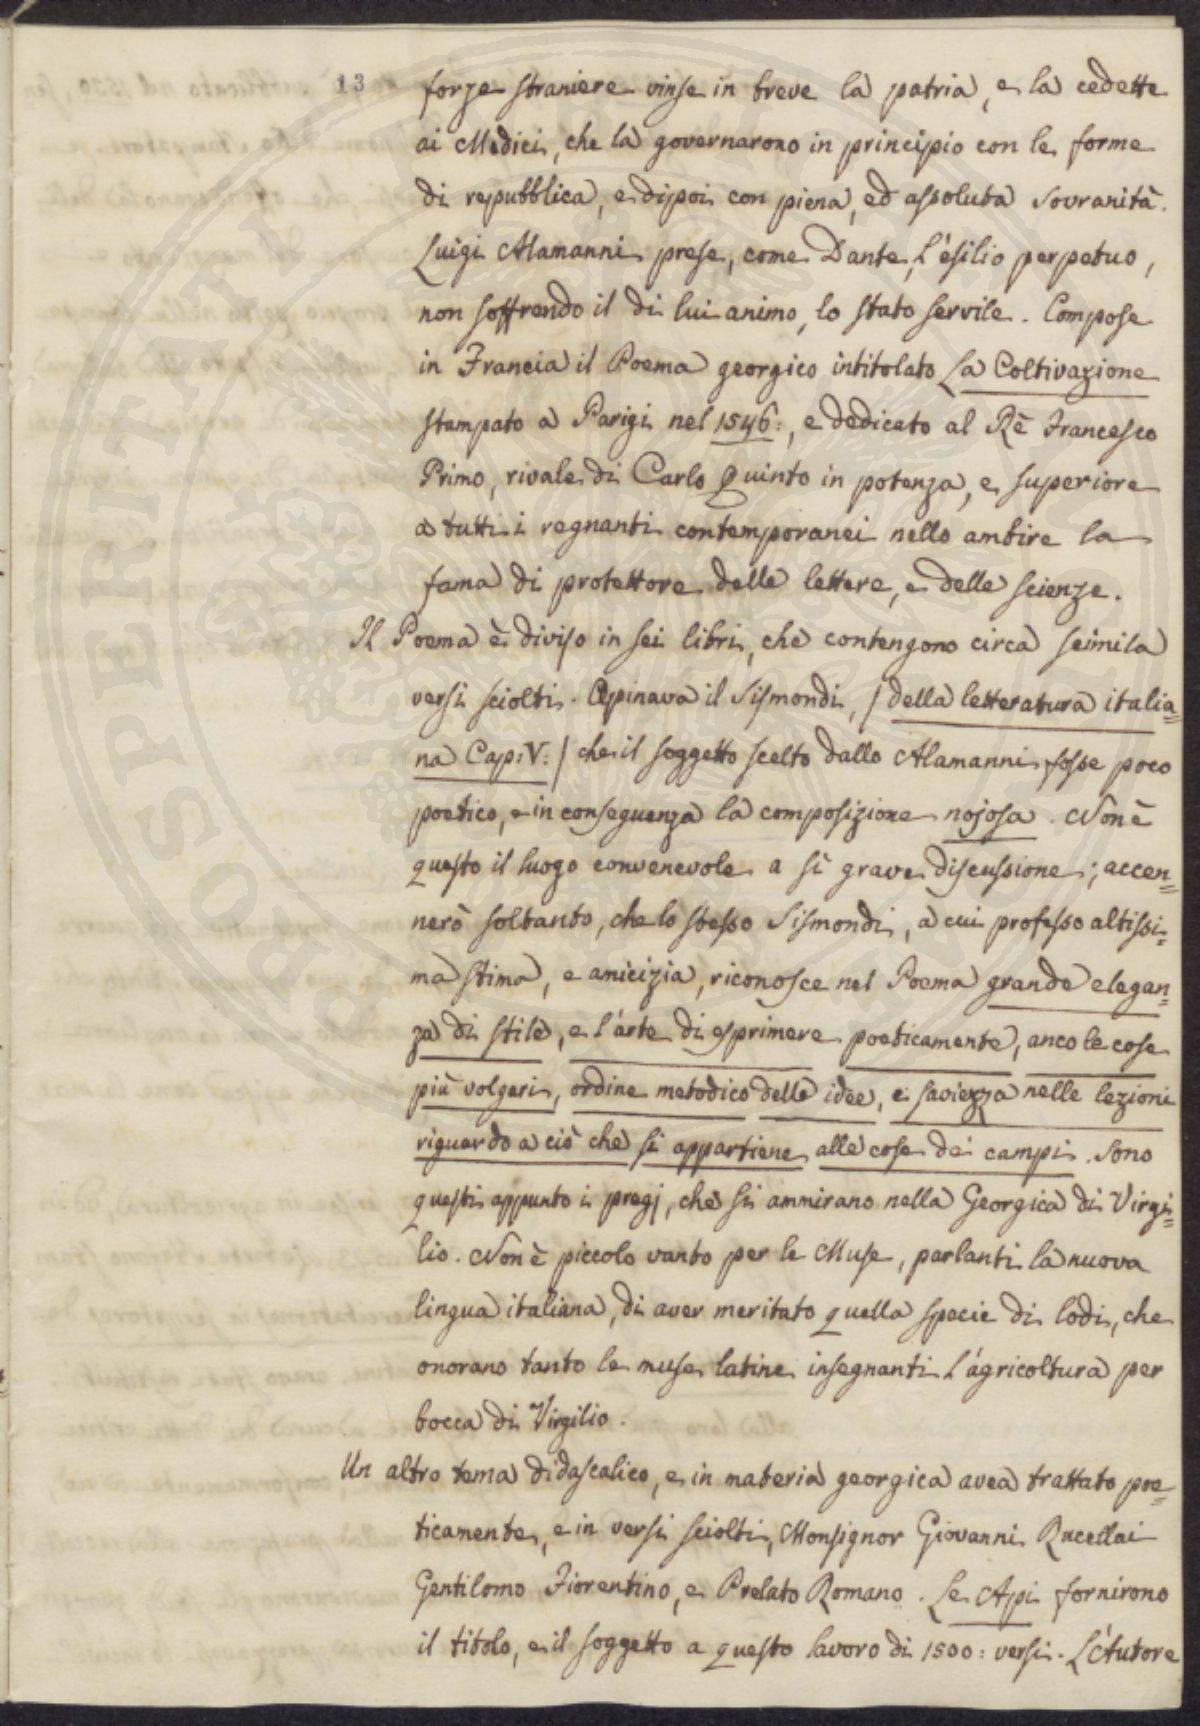 13
forze straniere vinse in breve la patria, e la cedette
ai Medici, che la governarono in principio con le forme
di repubblica, e dipoi con piena, ed assoluta sovranità.
Luigi Alamanni prese, come Dante, l'esilio perpetuo,
non soffrendo il di lui animo, lo stato servile. Compose
in Francia il Poema georgico intitolato La Coltivazione
stampato a Parigi nel 1546:, e dedicato al Rè Francesco
Primo, rivale di Carlo Quinto in potenza, e superiore
a tutti i regnanti contemporanei nello ambire la
fama di protettore delle lettere, e delle scienze.
Il Poema è diviso in sei libri, che contengono circa seimila
versi sciolti. Opinava il Sismondi, /della letteratura italia=
na Cap: V:/ che il soggetto scelto dallo Alamanni fosse poco
poetico, e in conseguenza la composizione nojosa. Non è
questo il luogo convenevole a sì grave discussione; accen=
nerò soltanto, che lo stesso Sismondi, a cui professo altissi=
ma stima, e amicizia, riconosce nel Poema grande elegan=
za di stile, e l'arte di esprimere poeticamente, anco le cose
più volgari, ordine metodico delle idee, e saviezza nelle lezioni
riguardo a ciò che si appartiene alle cose de' campi. Sono
questi appunto i pregj, che si ammirano nella Georgica di Virgi=
lio. Non è piccolo vanto per le Muse, parlanti la nuova
lingua italiana, di aver meritato quella specie di lodi, che
onorano tanto le muse latine insegnanti l'agricoltura per
bocca di Virgilio.
Un altro tema didascalico, e in materia georgica avea trattato poe=
ticamente, e in versi sciolti, Monsignor Giovanni Rucellai
Gentilomo Fiorentino, e Prelato Romano. Le Api fornirono
il titolo, e il soggetto a questo lavoro di 1500: versi. L'Autore
PROSPERITATI